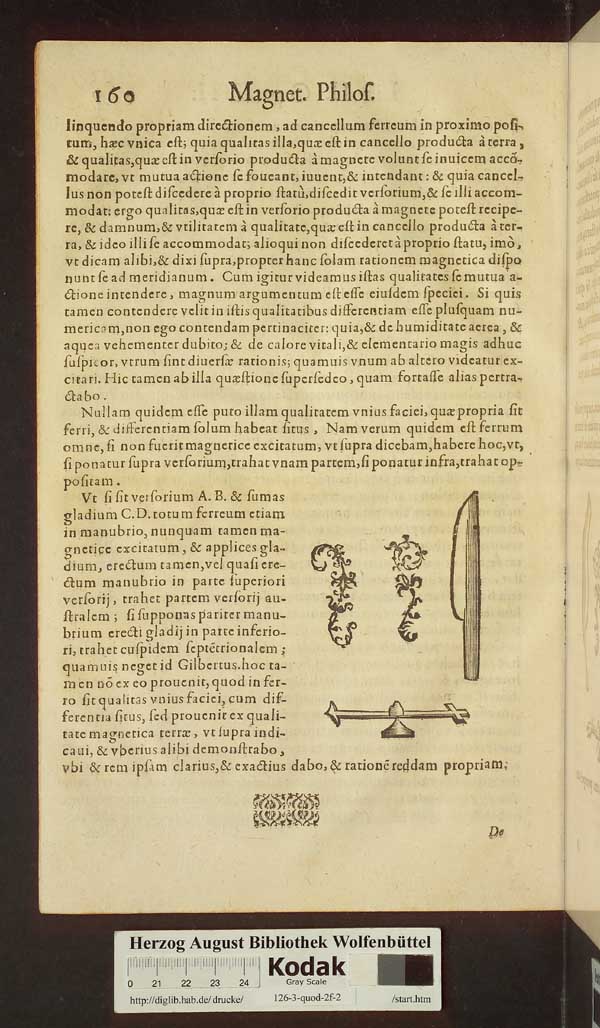 160 Magnet. Philoſ.
linquendo propriam directionem, ad cancellum ferreum in proximo poſi-
tum, hæc vnica eſt; quia qualitas illa, quæ eſt in cancello producta à terra,
& qualitas, quæ eſt in verſorio producta à magnete volunt ſe inuicem accõ-
modare, vt mutua actione ſe foueant, iuuent, & intendant: & quia cancel-
lus non poteſt diſcedere à proprio ſtatù, diſcedit verſorium, & ſe illi accom-
modat: ergo qualitas, quæ eſt in verſorio producta à magnete poteſt recipe-
re, & damnum, & vtilitatem à qualitate, quæ eſt in cancello producta à ter-
ra, & ideo illi ſe accommodat; alioqui non diſcederet à proprio ſtatu, imò,
vt dicam alibi, & dixi ſupra, propter hanc ſolam rationem magnetica diſpo
nunt ſe ad meridianum. Cum igitur videamus iſtas qualitates ſe mutua a-
ctione intendere, magnum argumentum eſt eſſe eiuſdem ſpeciei. Si quis
tamen contendere velit in iſtis qualitatibus differentiam eſſe pluſquam nu-
mericam, non ego contendam pertinaciter: quia, & de humiditate aerea, &
aquea vehementer dubito; & de calore vitali, & elementario magis adhuc
ſuſpicor, vtrum ſint diuerſæ rationis; quamuis vnum ab altero videatur ex-
citari. Hic tamen ab illa quæſtione ſuperſedeo, quam fortaſſe alias pertra-
ctabo.
Nullam quidem eſſe puto illam qualitatem vnius faciei, quæ propria ſit
ferri, & differentiam ſolum habeat ſitus, Nam verum quidem eſt ferrum
omne, ſi non fuerit magnetice excitatum, vt ſupra dicebam, habere hoc, vt,
ſi ponatur ſupra verſorium, trahat vnam partem, ſi ponatur infra, trahat op-
poſitam.
Vt ſi ſit verſorium A. B. & ſumas
gladium C. D. totum ferreum etiam
in manubrio, nunquam tamen ma-
gnetice excitatum, & applices gla-
dium, erectum tamen, vel quaſi ere-
ctum manubrio in parte ſuperiori
verſorij, trahet partem verſorij au-
ſtralem; ſi ſupponas pariter manu-
brium erecti gladij in parte inferio-
ri, trahet cuſpidem ſeptẽtrionalem;
quamuis neget id Gilbertus. hoc ta-
men nõ ex eo prouenit, quod in fer-
ro ſit qualitas vnius faciei, cum dif-
ferentia ſitus, ſed prouenit ex quali-
tate magnetica terræ, vt ſupra indi-
caui, & vberius alibi demonſtrabo,
vbi & rem ipſam clarius, & exactius dabo, & rationẽ reddam propriam.
De
Herzog August Bibliothek Wolfenbüttel
Kodak
Gray Scale
0 21 22 23 24
http://diglib.hab.de/drucke/ 126-3-quod-2f-2 /start.htm